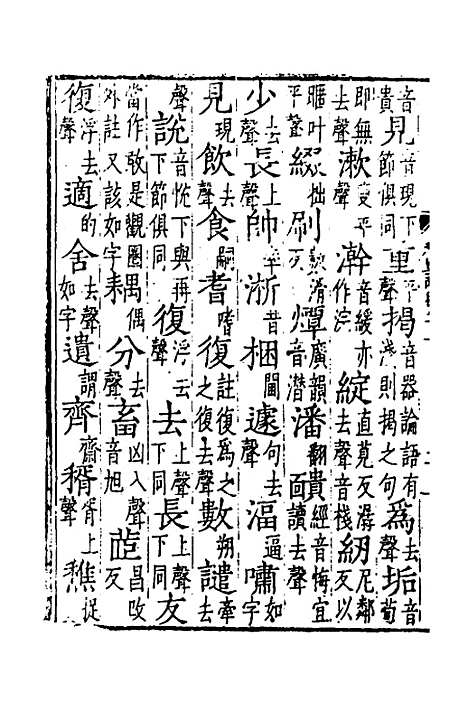 音貴見音現下節俱同重平聲揭音器論語有淺則揭之句為去聲垢音苟
即無去聲漱叟平聲澣音緩亦作浣綻直莧反潺去聲音棧紉尼鄰反以
暱叶平聲綴拙刷數滑反燂廣韻音潛潘翻靧經音悔宜讀去聲
少去聲長上聲帥率淅昔梱閫遽句去聲湢逼嘯如字
見現飲去聲食嗣耆嗜復註復為之之復去聲數朔譴牽去
聲說音悅下與再下節俱同復浮去聲去上聲下同長上聲下同友
當作敢是觀圈外註又該如字耦偶分去聲畜凶入聲音旭茝昌改反
復浮去聲適的舍去聲如字遺謂齊齋稰胥上聲穛捉